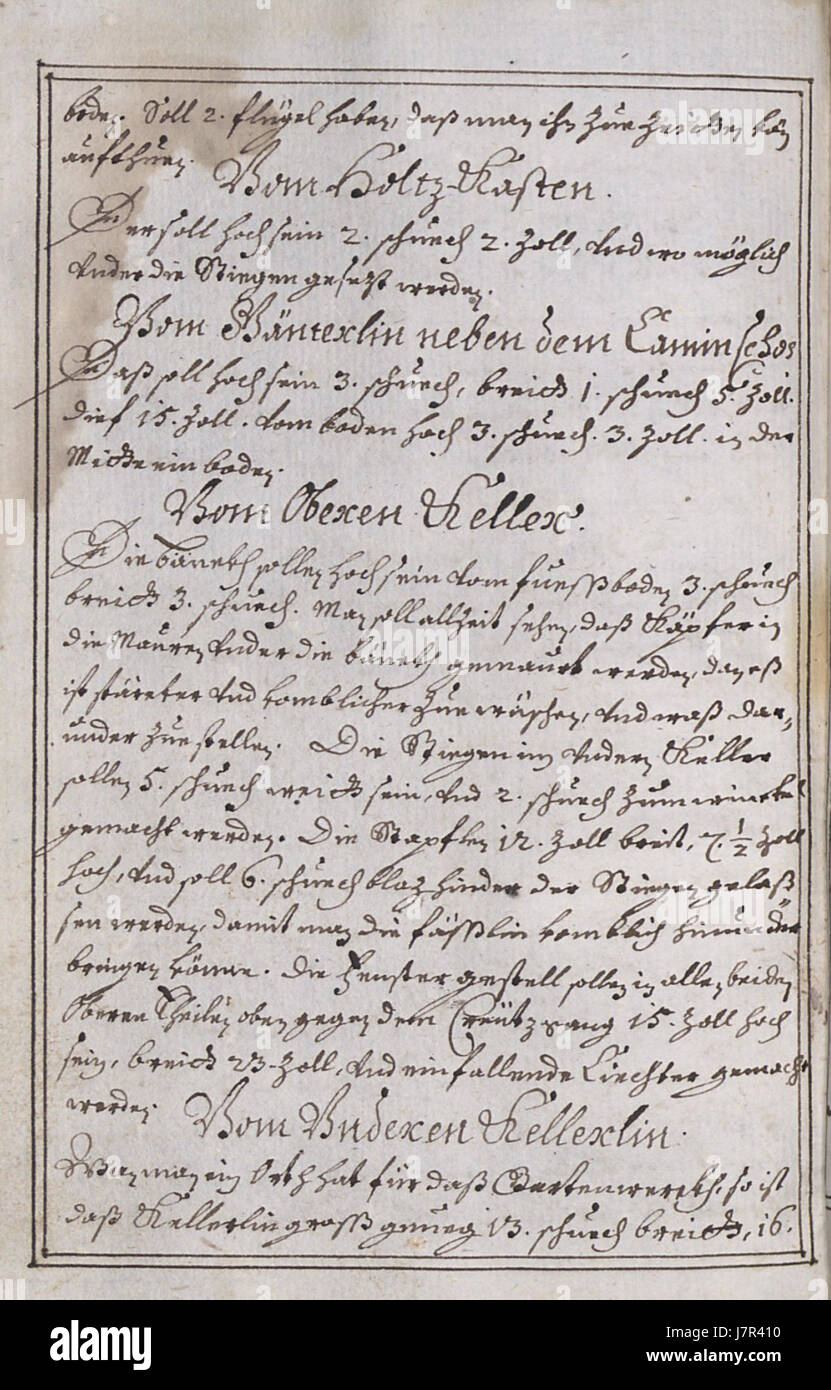 boden. Soll 2. flügel haben, daß man ihn zue Zeiten kan
aufthuen.
Vom Holtz-Kasten.
Der soll hoch sein 2. schuech 2. Zoll, vnd wo möglich
vnder die Stiegen gesetzt werden.
Vom Gänterlin neben dem Camin schos
Daß soll hoch sein 3. schuech, breidt 1. schuech 5. Zoll.
dief 15. Zoll. vom boden hoch 3. schuech. 3. Zoll. in der
Mitte ein boden.
Vom Oberen Keller.
Die bänckh sollen hoch sein vom fuessboden 3. schuech
breidt 3. schuech. Man soll allzeit sehen, daß Käpfer in
die Mauren vnder die bänckh gemaurt werden, dan eß
ist stärcker vnd komblicher zue wäschen, vnd waß dar-
under zue stellen. Die Stiegen im vndern Keller
sollen 5. schuech weidt sein, vnd 2. schuech zum winckel
gemacht werden. Die Stapflen 12. Zoll breit, 7. 1/2 Zoll
hoch, vnd soll 6. schuech blaz hinder der Stiegen gelaß
sen werden, damit man die fässlin komblich hinunder
bringen könne. Die Fenster gestell sollen in allen beiden
Oberen Theilen oben gegen dem Creützgang 15. Zoll hoch
sein, breidt 23. Zoll, vnd einfallende Liechter gemacht
werden.
Vom Vnderen Kellerlin.
Wan man ein Orth hat für daß Gartenwerckh, so ist
daß Kellerlin gross genueg 13. schuech breidt, 16.
alamy
Image ID: J7R410
www.alamy.com